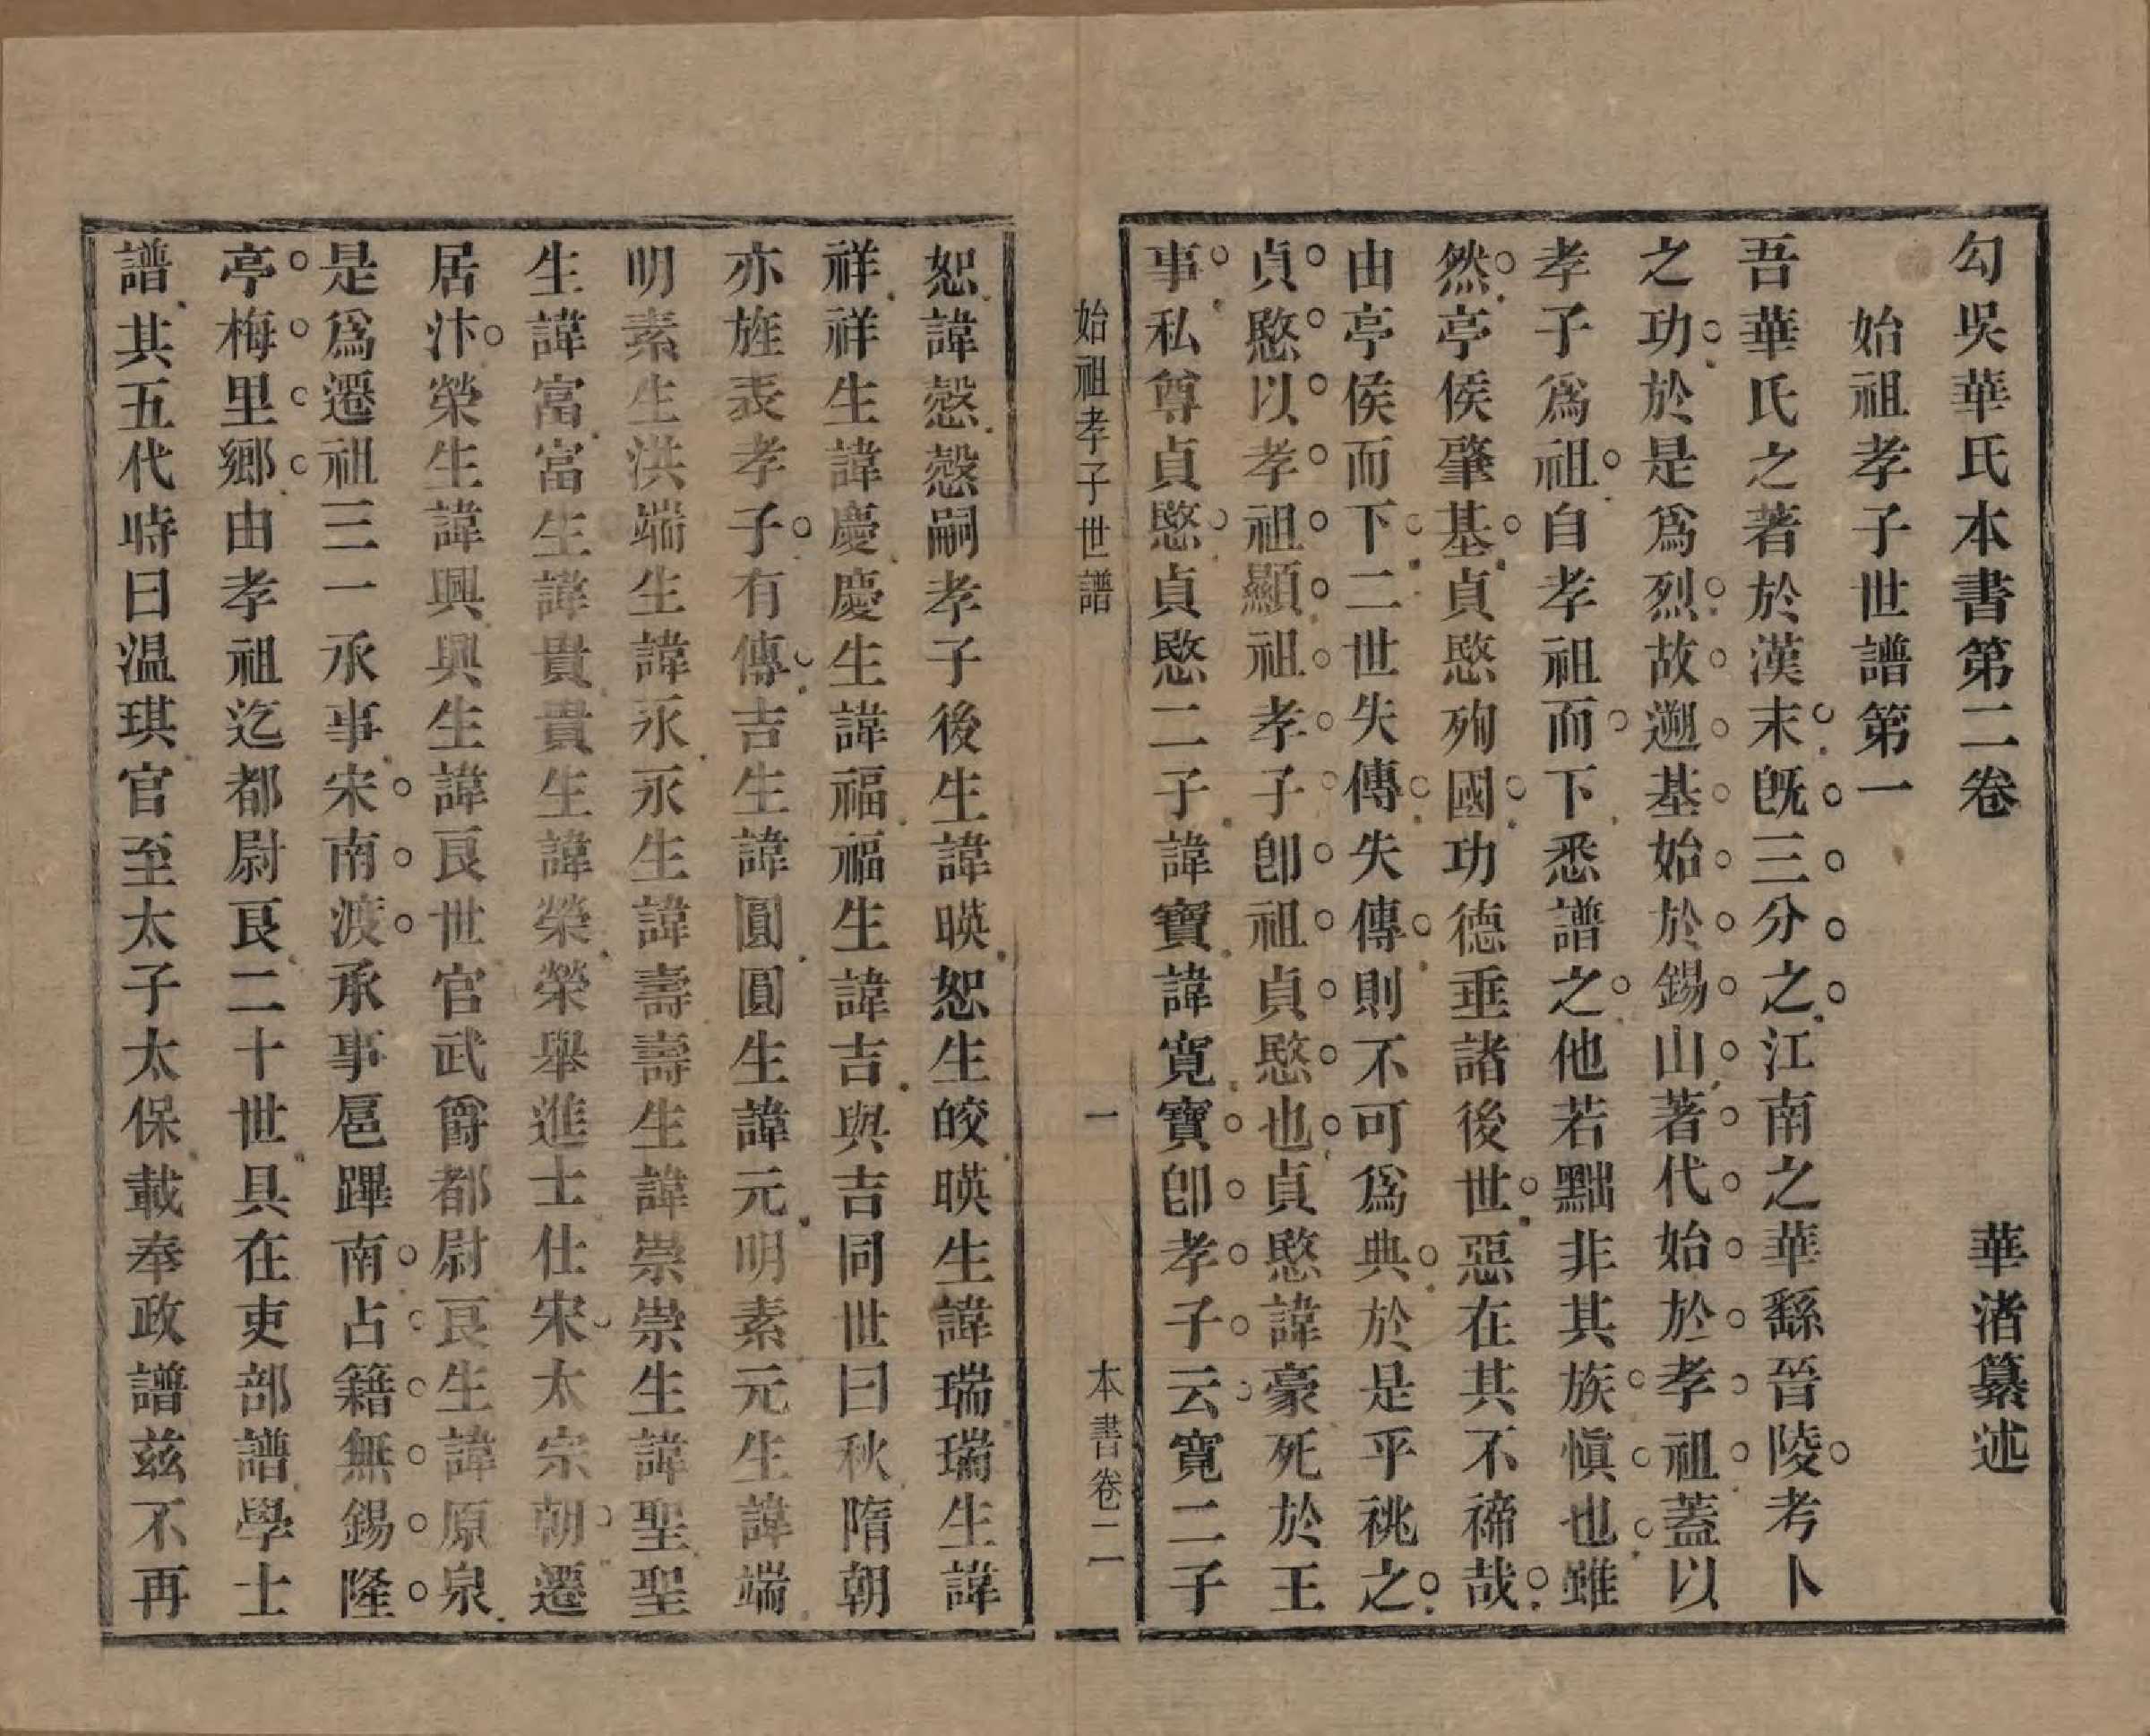 勾吳華氏本書第二卷
華渚纂述
始祖孝子世譜第一
吾華氏之著於漢末旣三分之江南之華繇晉陵考卜
之功於是爲烈故遡基始於錫山著代始於孝祖蓋以
孝子爲祖自孝祖而下悉譜之他若黜非其族愼也雖
然亭侯肇基貞愍殉國功德垂諸後世惡在其不禘哉
由亭侯而下二世失傳失傳則不可爲典於是乎祧之
貞愍以孝祖顯祖孝子卽祖貞愍也貞愍諱豪死於王
事私尊貞愍貞愍二子諱寶諱寬寶卽孝子云寬二子
始祖孝子世譜
一
本書卷二
恕諱慤慤嗣孝子後生諱暎恕生皎暎生諱瑞瑞生諱
祥祥生諱慶慶生諱福福生諱吉與吉同世曰秋隋朝
亦旌表孝子有傳吉生諱圓圓生諱元明素元生諱端
明素生洪端生諱永永生諱壽壽生諱崇崇生諱聖聖
生諱富富生諱貴貴生諱榮榮舉進士仕宋太宗朝遷
居汴榮生諱興興生諱良世官武爵都尉良生諱原泉
是爲遷祖三一承事宋南渡承事扈蹕南占籍無錫隆
亭梅里鄉由孝祖迄都尉良二十世具在吏部譜學士
譜其五代時曰温琪官至太子太保載奉政譜兹不再